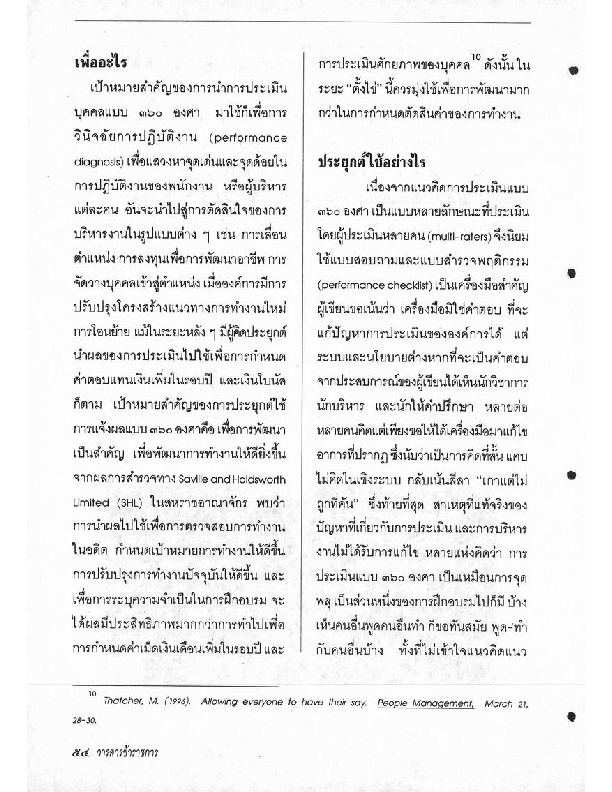 เพื่ออะไร
เป้าหมายสำคัญของการนำการประเมิน
บุคคลแบบ ๓๖๐ องศา มาใช้ก็เพื่อการ
วินิจฉัยการปฏิบัติงาน (performance
diagnosis) เพื่อแสวงหาจุดเด่นและจุดด้อยใน
การปฏิบัติงานของพนักงาน หรือผู้บริหาร
แต่ละคน อันจะนำไปสู่การตัดสินใจของการ
บริหารงานในรูปแบบต่าง ๆ เช่น การเลื่อน
ตำแหน่ง การลงทุนเพื่อการพัฒนาอาชีพ การ
จัดวางบุคคลเข้าสู่ตำแหน่ง เมื่อองค์การมีการ
ปรับปรุงโครงสร้างแนวทางการทำงานใหม่
การโอนย้าย แม้ในระยะหลัง ๆ มีผู้คิดประยุกต์
นำผลของการประเมินไปใช้เพื่อการกำหนด
ค่าตอบแทนเงินเพิ่มในรอบปี และเงินโบนัส
ก็ตาม เป้าหมายสำคัญของการประยุกต์ใช้
การแจ้งผลแบบ ๓๖๐ องศาคือ เพื่อการพัฒนา
เป็นสำคัญ เพื่อพัฒนาการทำงานให้ดียิ่งขึ้น
จากผลการสำรวจทาง Saville and Holdsworth
Limited (SHL) ในสหราชอาณาจักร พบว่า
การนำผลไปใช้เพื่อการตรวจสอบการทำงาน
ในอดีต กำหนดเป้าหมายการทำงานให้ดีขึ้น
การปรับปรุงการทำงานปัจจุบันให้ดีขึ้น และ
เพื่อการระบุความจำเป็นในการฝึกอบรม จะ
ได้ผลมีประสิทธิภาพมากกว่าการทำไปเพื่อ
การกำหนดค่าเม็ดเงินเดือนเพิ่มในรอบปี และ
การประเมินศักยภาพของบุคคล¹⁰ ดังนั้น ใน
ระยะ “ตั้งไข่” นี้ควรมุ่งใช้เพื่อการพัฒนามาก
กว่าในการกำหนดตัดสินค่าของการทำงาน
ประยุกต์ใช้อย่างไร
เนื่องจากแนวคิดการประเมินแบบ
๓๖๐ องศา เป็นแบบหลายลักษณะที่ประเมิน
โดยผู้ประเมินหลายคน (multi-raters) จึงนิยม
ใช้แบบสอบถามและแบบสำรวจพฤติกรรม
(performance checklist) เป็นเครื่องมือสำคัญ
ผู้เขียนขอเน้นว่า เครื่องมือมิใช่คำตอบ ที่จะ
แก้ปัญหาการประเมินขององค์การได้ แต่
ระบบและนโยบายต่างหากที่จะเป็นคำตอบ
จากประสบการณ์ของผู้เขียนได้เห็นนักวิชาการ
นักบริหาร และนักให้คำปรึกษา หลายต่อ
หลายคนคิดแต่เพียงขอให้ได้เครื่องมือมาแก้ไข
อาการที่ปรากฏ ซึ่งนับว่าเป็นการคิดที่สั้น แคบ
ไม่คิดในเชิงระบบ กลับเน้นลีลา “เกาแต่ไม่
ถูกที่คัน” ซึ่งท้ายที่สุด สาเหตุที่แท้จริงของ
ปัญหาที่เกี่ยวกับการประเมิน และการบริหาร
งานไม่ได้รับการแก้ไข หลายแห่งคิดว่า การ
ประเมินแบบ ๓๖๐ องศา เป็นเหมือนการจุด
พลุ เป็นส่วนหนึ่งของการฝึกอบรมไปก็มี บ้าง
เห็นคนอื่นพูดคนอื่นทำ ก็ขอทันสมัย พูด-ทำ
กับคนอื่นบ้าง ทั้งที่ไม่เข้าใจแนวคิดแนว
¹⁰ Thatcher, M. (1996). Allowing everyone to have their say. People Management, March 21,
28-30.
๕๔ วารสารข้าราชการ